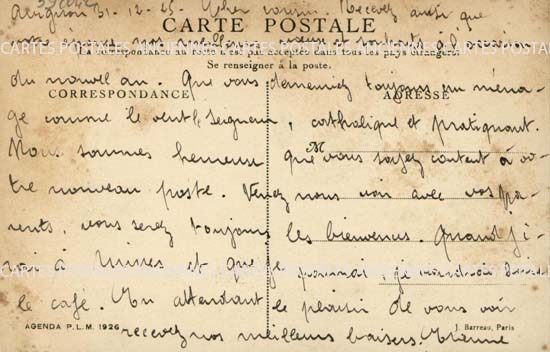 Avignon 31-12-25 Cher cousin. Recevez ainsi que
CARTE POSTALE
nos meilleurs vœux et souhaits à l'occasion
La correspondance au recto n'est pas acceptée dans tous les pays étrangers.
Se renseigner à la poste.
du nouvel an. Que vous demeuriez toujours un ména-
CORRESPONDANCE
ADRESSE
ge comme le veut le Seigneur, catholique et pratiquant.
M
Nous sommes heureuse que vous soyez content à vo-
tre nouveau poste. Venez nous voir avec vos pa-
rents, vous serez toujours les bienvenus. Quand j'i-
CARTES POSTALES ANCIENNES
rai à Nimes et que je pourrai, je viendrai
le café. En attendant le plaisir de vous voir
AGENDA P.L.M. 1926
J. Barreau, Paris
recevez nos meilleurs baisers. Etienne